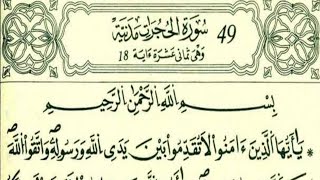 49 سُورَةُ الْحُجُرَاتِ مَدَنِيَّة
وَهْيَ ثَمَانِى عَشْرَةَ ءَايَة 18
بِسْمِ اللَّهِ الرَّحْمَٰنِ الرَّحِيمِ
يَٰٓأَيُّهَا الَّذِينَ ءَامَنُوا۟ لَا تُقَدِّمُوا۟ بَيْنَ يَدَىِ اللَّهِ وَرَسُولِهِۦ وَاتَّقُوا۟ اللَّهَ